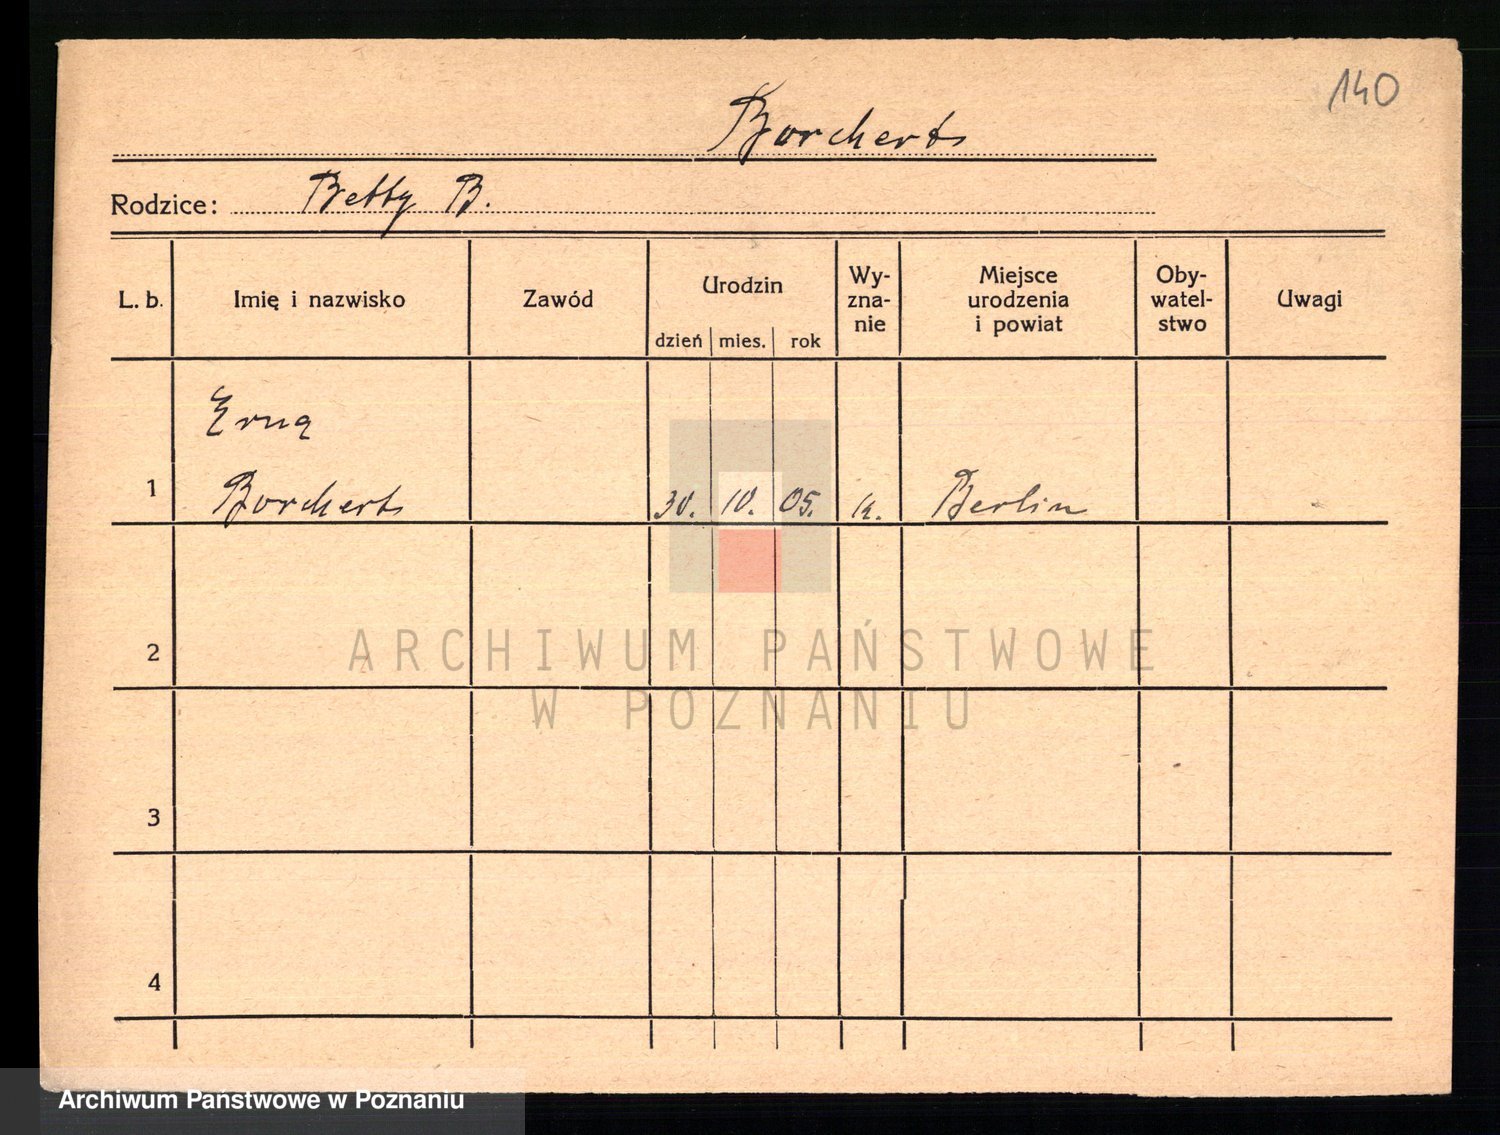 140
Borcherts
Rodzice: Betty B.
L. b.
Imię i nazwisko
Zawód
Urodzin
dzień mies. rok
Wy-
zna-
nie
Miejsce
urodzenia
i powiat
Oby-
watel-
stwo
Uwagi
Erna
1 Borcherts 30. 10. 05. k. Berlin
2
ARCHIWUM PAŃSTWOWE
W POZNANIU
3
4
Archiwum Państwowe w Poznaniu